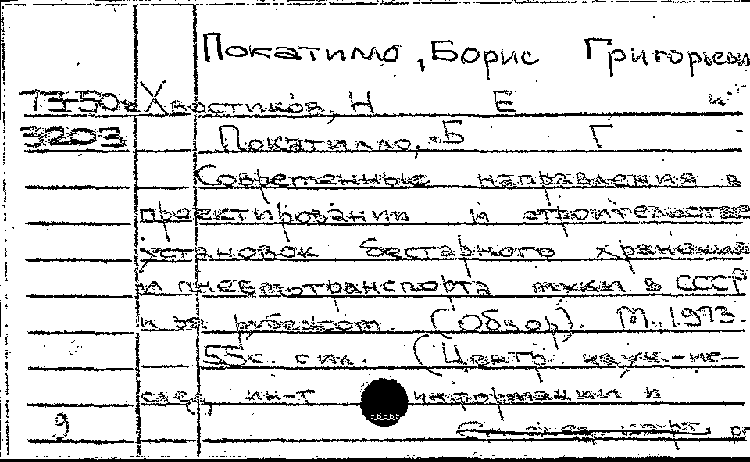 Покатило, Борис Григорьеви
Хвостиков, Н Е и
3203 Покатилло, Б Г
Современные направления в
проектировании и строительстве
установок бестарного хранения
и пневмотранспорта муки в СССР
и за рубежом. (Обзор). М., 1973.
55с. с ил. (Центр. науч.-ис-
след. ин-т информации и
9